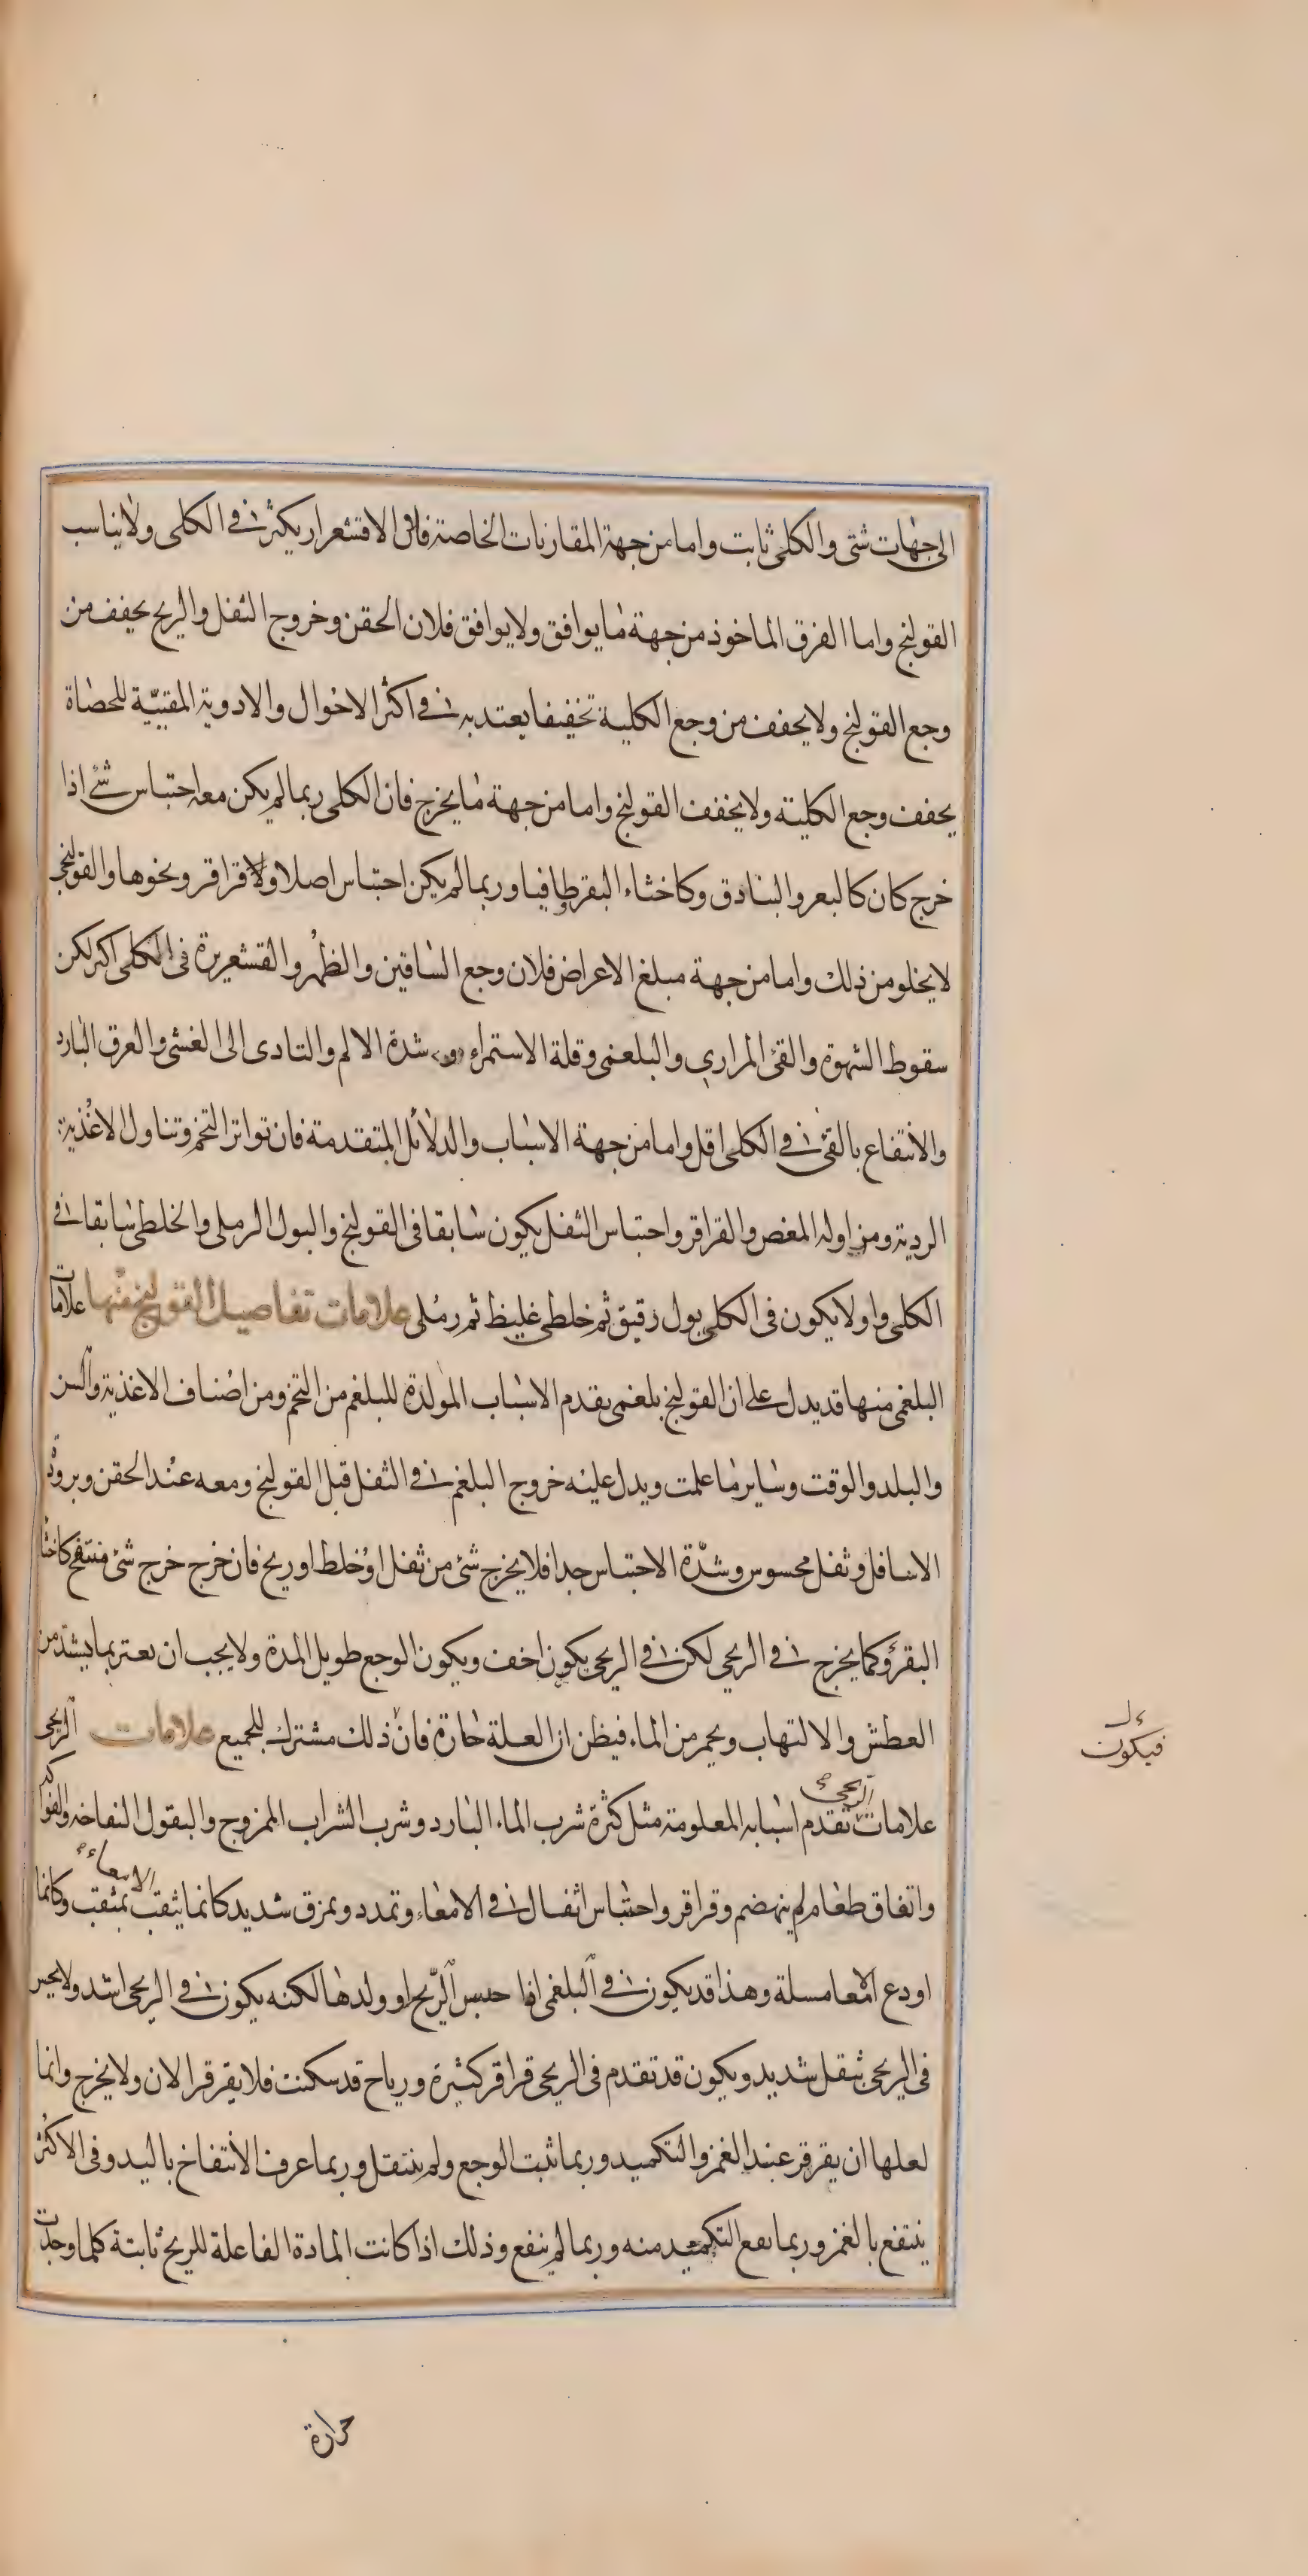 الى جهات شتى والكلى ثابت واما من جهة المقارنات الخاصة فان الاقشعرار يكثر فى الكلى ولا يناسب
القولنج واما الفرق الماخوذ من جهة ما يوافق ولا يوافق فلان الحقن وخروج الثفل والريح يخفف من
وجع القولنج ولا يخفف من وجع الكلية تخفيفا يعتد به فى اكثر الاحوال والادوية المفتتة للحصاة
يخفف وجع الكلية ولا يخفف القولنج واما من جهة ما يخرج فان الكلى ربما لم يكن معه احتباس شئ اذا
خرج كان كالبعر والبنادق وكاخثاء البقر طافيا وربما لم يكن احتباس اصلا ولا قراقر ونحوها والقولنج
لا يخلو من ذلك واما من جهة مبلغ الاعراض فلان وجع الساقين والظهر والقشعريرة فى الكلى اكثر لكن
سقوط الشهوة والقئ المراري والبلغمى وقلة الاستمراء و شدة الالم والتادى الى الغشى والعرق البارد
والانتفاع بالقئ فى الكلى اقل واما من جهة الاسباب والدلائل المتقدمة فان تواتر التخم وتناول الاغذية
الردية ومزاولة المغص والقراقر واحتباس الثفل يكون سابقا فى القولنج والبول الرملى والخلطى سابقا فى
الكلى واولا يكون فى الكلى بول رقيق ثم خلطى غليظ ثم رملى علامات تفاصيل القولنج فمنها علامات
البلغمى منها قد يدل على ان القولنج بلغمى تقدم الاسباب المولدة للبلغم من التخم ومن اصناف الاغذية والسن
والبلد والوقت وساير ما علمت ويدل عليه خروج البلغم فى الثفل قبل القولنج ومعه عند الحقن وبرودة
الاسافل وثقل محسوس وشدة الاحتباس جدا فلا يخرج شئ من ثفل او خلط او ريح فان خرج خرج شئ منتفخ كاخثا
البقر وكما يخرج فى الريحى لكن فى الريحى يكون اخف ويكون الوجع طويل المدة ولا يجب ان يعتر بما يشتد من
العطش والالتهاب ويحمر من الماء فيظن ان العلة حارة فان ذلك مشترك للجميع علامات الريحى
فيكون
علامات الريحى تقدم اسبابه المعلومة مثل كثرة شرب الماء البارد وشرب الشراب الممزوج والبقول النفاخة والفواكه
واتفاق طعام لم ينهضم وقراقر واحتباس اثفال فى الامعاء وتمدد وتمزق شديد كانما يثقب الامعاء بمثقب وكانما
اودع الامعا مسلة وهذا قد يكون فى البلغمى اذا حبس الريح او ولدها لكنه يكون فى الريحى اشد ولا يحس
فى الريحى بثقل شديد ويكون قد تقدم فى الريحى قراقر كثيرة ورياح قد سكنت فلا يقرقر الان ولا يخرج وانما
لعلها ان يقرقر عند الغمز والتكميد وربما ثبت الوجع ولم ينتقل وربما عرف الانتفاخ باليد وفى الاكثر
ينتفع بالغمز وربما نفع التكميد منه وربما لم ينفع وذلك اذا كانت المادة الفاعلة للريح ثابتة كلما وجدت
حرارة